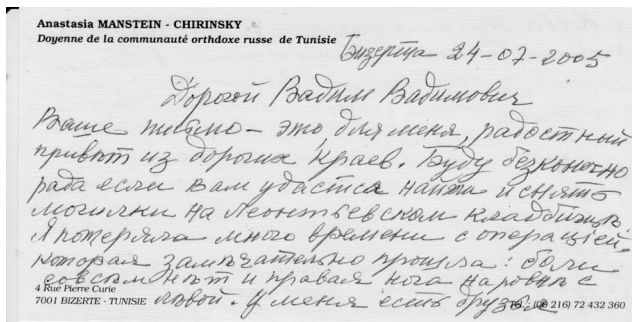 Anastasia MANSTEIN - CHIRINSKY
Doyenne de la communauté orthdoxe russe de Tunisie
Бизерта 24-07-2005
Дорогой Вадим Вадимович
Ваше письмо - это, для меня, радостный
привѣт из дорогих краев. Буду безконечно
рада если вам удастся найти и снять
могилки на Леонтьевском кладбище.
Я потеряла много времени с операцiей
которая замѣчательно прошла: боли
совсѣм нѣт и правая нога наровнѣ с
4 Rue Pierre Curie
лѣвой. У меня есть друзья
7001 BIZERTE - TUNISIE
TEL : (00 216) 72 432 360